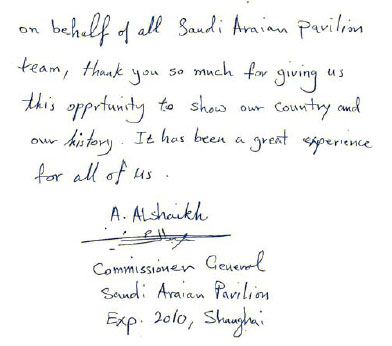 on behalf of all Saudi Araian Pavilion
team, thank you so much for giving us
this opprtunity to show our country and
our history. It has been a great experience
for all of us.
A. Alshaikh
Commissioner General
Saudi Araian Pavilion
Exp. 2010, Shanghai